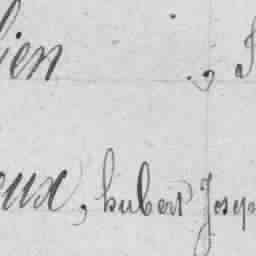 ien ., J
eux, hubert Josep